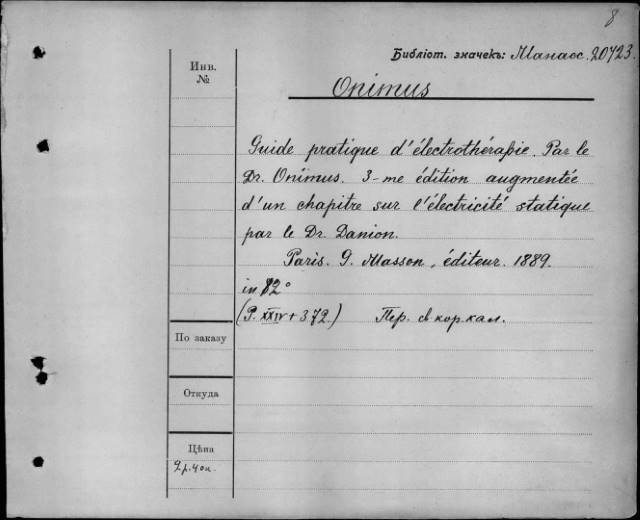 8
Библіот. значекъ: Манасс. 20723.
Инв.
№
Onimus
Guide pratique d'électrothérapie. Par le
Dr. Onimus. 3-me édition augmentée
d'un chapitre sur l'électricité statique
par le Dr. Danion.
Paris. G. Masson, éditeur. 1889.
in 12°
(P. XXIV + 372.) Пер. в кор. кал.
По заказу
Откуда
Цѣна
2 р. 40 к.